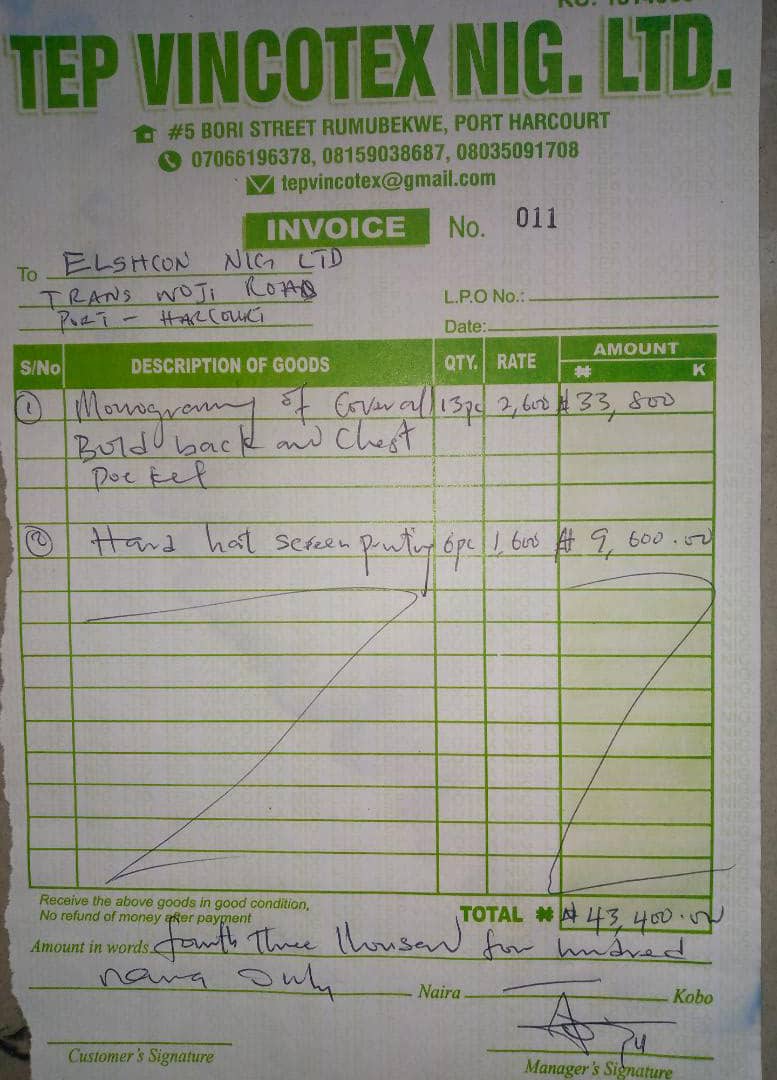 TEP VINCOTEX NIG. LTD.
#5 BORI STREET RUMUBEKWE, PORT HARCOURT
07066196378, 08159038687, 08035091708
tepvincotex@gmail.com
INVOICE No. 011
To ELSHCON NIG LTD
TRANS WOJI ROAD
PORT - HARCOURT
L.P.O No.:
Date:
S/No DESCRIPTION OF GOODS QTY. RATE AMOUNT
₦ K
1 Monogramy of Coverall 13pc 2,600 ₦33,800
Bold back and Chest
Pocket
2 Hard hat screen printing 6pc 1,600 ₦ 9,600.00
Receive the above goods in good condition,
No refund of money after payment
TOTAL ₦ ₦43,400.00
Amount in words fourth Three thousand four hundred
naira Only Naira Kobo
Customer's Signature
Manager's Signature